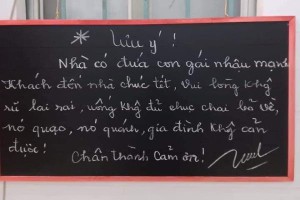 * Lưu ý!
Nhà có đứa con gái nhậu mạnh
Khách đến nhà chúc tết, vui lòng khg
rũ lai rai, uống khg đủ chục chai bỏ về,
nó quạo, nó quánh, gia đình khg cản
được!
Chân thành cảm ơn!